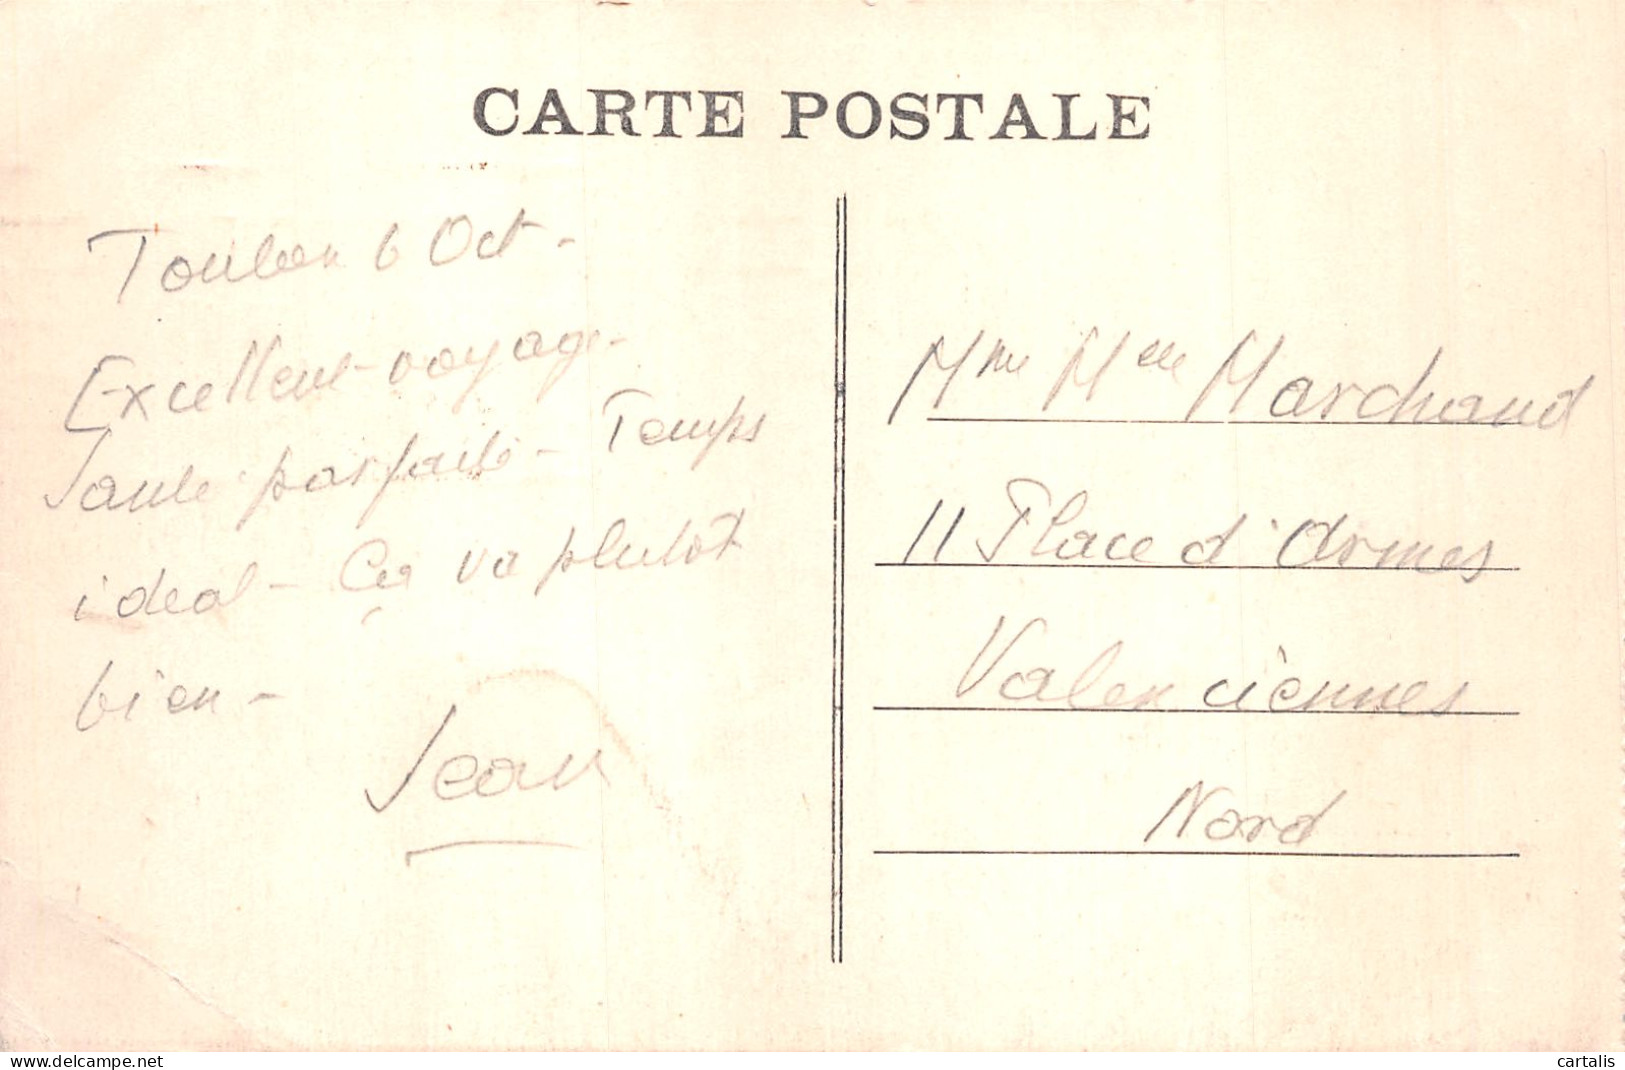 CARTE POSTALE
Toulon 6 Oct -
Excellent voyage -
Santé parfaite - Temps
ideal - Ça va plutôt
bien -
Jean
Mme Melle Marchand
11 Place d'Armes
Valenciennes
Nord
www.delcampe.net
cartalis